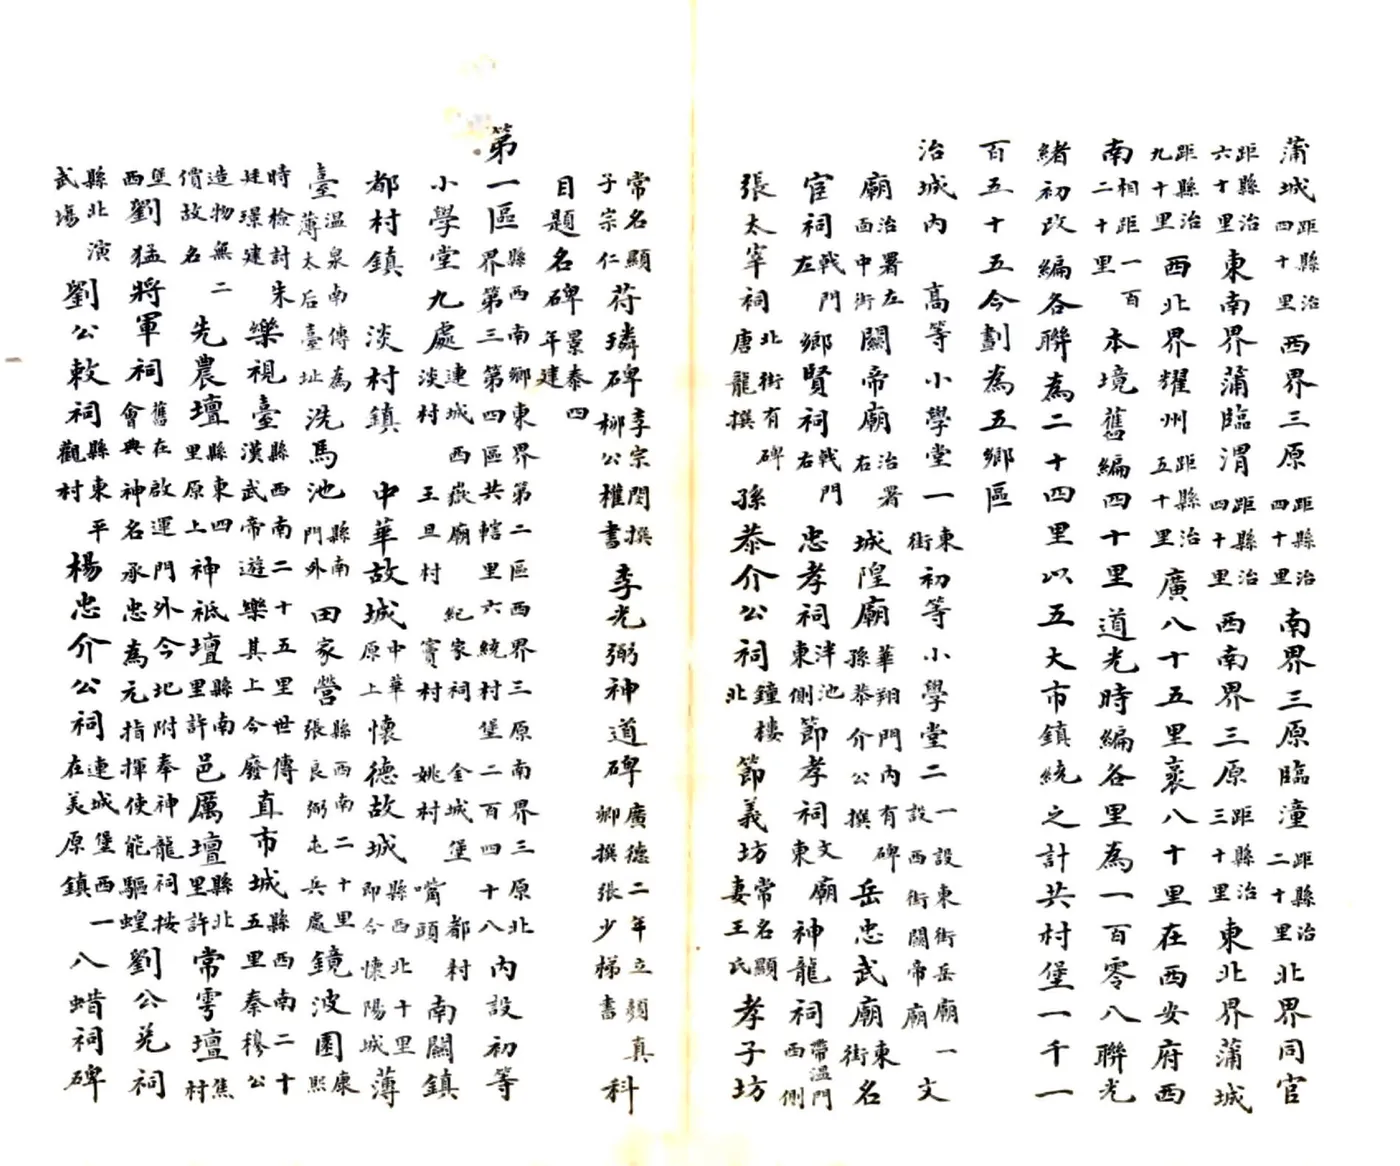 蒲城距縣治四十里西界三原距縣治四十里南界三原臨潼距縣治二十里北界同官
距縣治六十里東南界蒲臨渭距縣治四十里西南界三原距縣治三十里東北界蒲城
距縣治九十里西北界耀州距縣治五十里廣八十五里袤八十里在西安府西
南相距一百二十里本境舊編四十里道光時編各里為一百零八聯光
緒初改編各聯為二十四里以五大市鎮統之計共村堡一千一
百五十五今劃為五鄉區
治城內 高等小學堂一東街初等小學堂二一設東街岳廟一設西街關帝廟文
廟治署左面中街關帝廟治署右城隍廟華翔門內有碑孫恭介公撰岳忠武廟東街名
宦祠戟門左鄉賢祠戟門右忠孝祠泮池東側節孝祠文廟東神龍祠帶溫門西側
張太宰祠北街有碑唐龍撰孫恭介公祠鐘樓北節義坊常名顯妻王氏孝子坊
常名顯子宗仁苻璘碑李宗閔撰柳公權書李光弼神道碑廣德二年立顏真卿撰張少梯書科
目題名碑景泰四年建
第一區縣西南鄉東界第二區西界三原南界三原北界第三第四區共轄里六統村堡二百四十八內設初等
小學堂九處連城 西嶽廟 紀家祠 金城堡 都村 淡村 王旦村 竇村 姚村 嘴頭南關鎮
都村鎮 淡村鎮 中華故城中華原上懷德故城縣西北十里即今懷陽城薄
臺溫泉南傳為薄太后臺址洗馬池縣南門外田家營縣西南二十里張良弼屯兵處鏡波園康熙
時檢討朱廷璟建樂視臺縣西南二十五里世傳漢武帝遊樂其上今廢直市城縣西南二十五里秦穆公
造物無二價故名先農壇縣東四里原上神祇壇縣南里許邑厲壇縣北里許常雩壇焦村
堡西劉猛將軍祠舊在啟運門外今圮附奉神龍祠按會典神名承忠為元指揮使能驅蝗劉公兌祠
縣北演武場劉公敕祠縣東平觀村楊忠介公祠連城堡西一在美原鎮八蜡祠碑